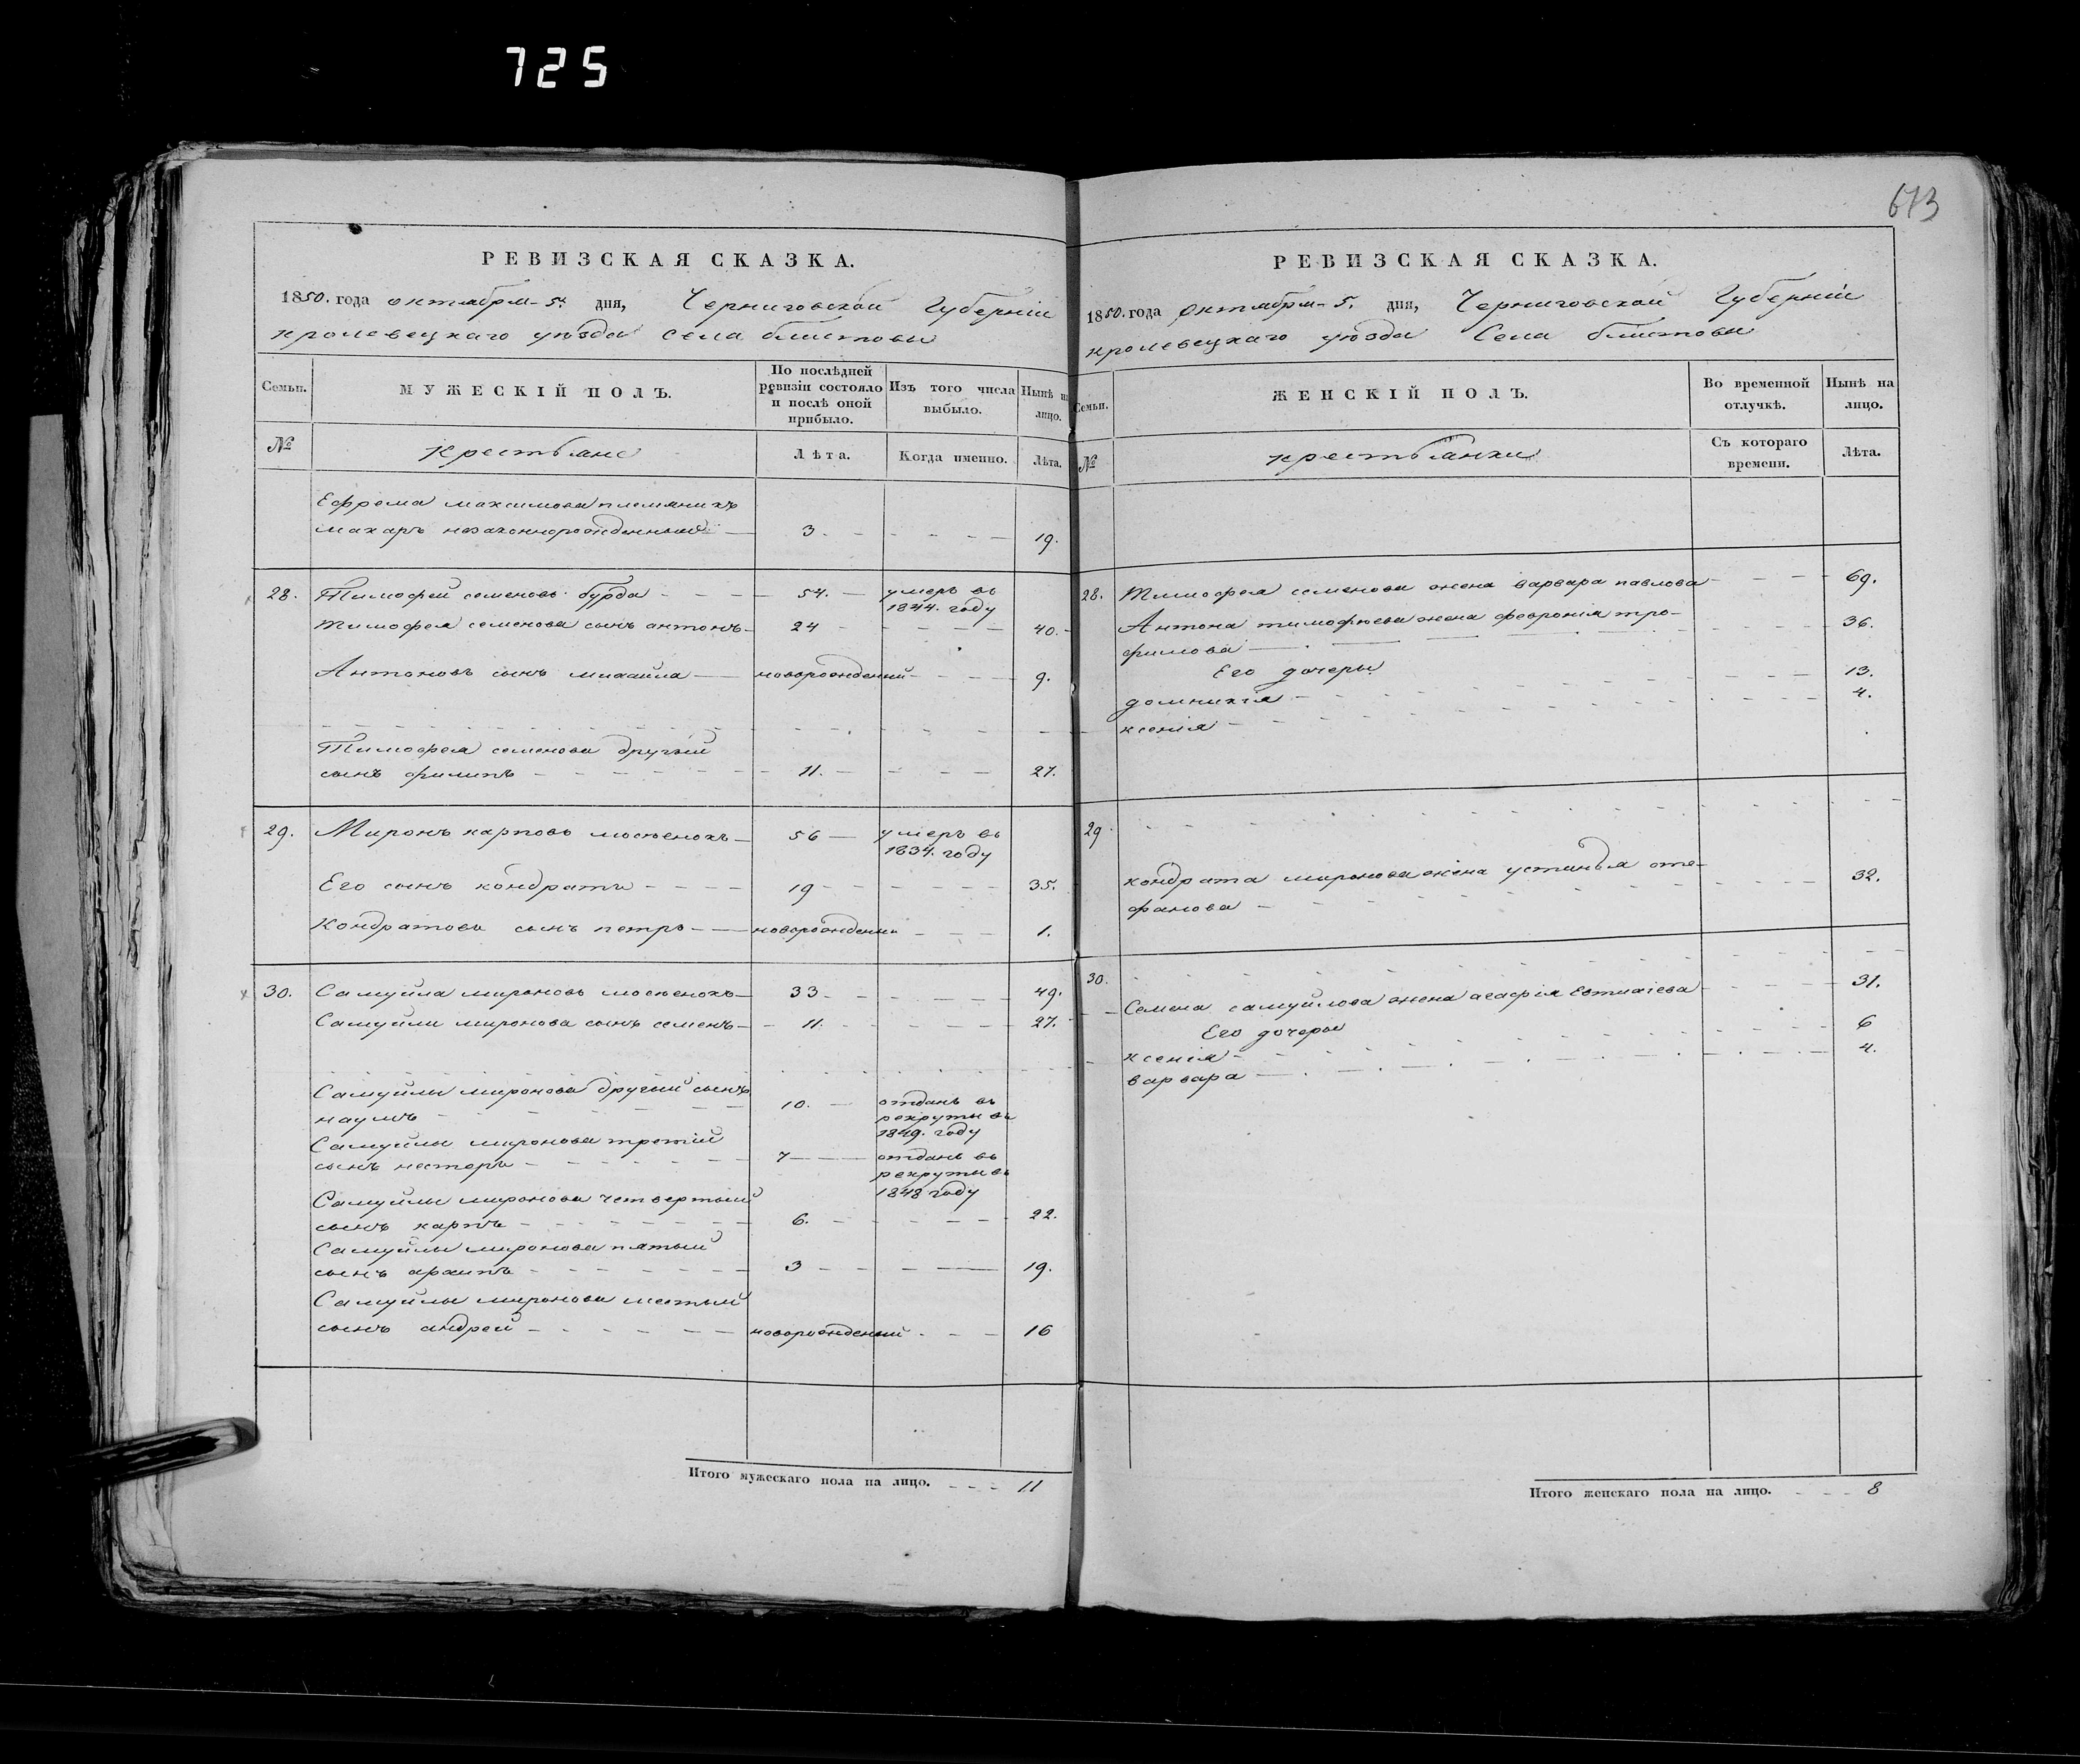 725
673
РЕВИЗСКАЯ СКАЗКА.
1850. года октября 5. дня, Черниговской Губерніи
кролевецкаго уѣзда села блистовы
Семьи.
МУЖЕСКІЙ ПОЛЪ.
По послѣдней ревизіи состояло и послѣ оной прибыло.
Изъ того числа выбыло.
Нынѣ на лицо.
№
крестьяне
Лѣта.
Когда именно.
Лѣта.
Ефрема максимова племяникъ
макаръ незаконнорожденный 3 19.
28. Тимофей семеновъ бурда 54. умеръ въ
1844. году
Тимофея семенова сынъ антонъ 24 40.
Антоновъ сынъ михайла новорожденный 9.
Тимофея семенова другій
сынъ филипъ 11. 27.
29. Миронъ карповъ 56 умеръ въ
1834. году
Его сынъ кондратъ 19 35.
Кондратова сынъ петръ новорожденный 1.
30. Самуйла мироновъ 33 49.
Самуйлы миронова сынъ семенъ 11. 27.
Самуйлы миронова другий сынъ
наумъ 10. отданъ въ
рекруты въ
1849. году
Самуйлы миронова третій
сынъ несторъ 7 отданъ въ
рекруты въ
1848 году
Самуйлы миронова четвертый
сынъ карпъ 6. 22.
Самуйлы миронова пятый
сынъ 3 19.
Самуйлы миронова шестый
сынъ андрей новорожденный 16
Итого мужескаго пола на лицо. 11
РЕВИЗСКАЯ СКАЗКА.
1850. года октября 5. дня, Черниговской Губерніи
кролевецкаго уѣзда Села блистовы
Семьи.
ЖЕНСКІЙ ПОЛЪ.
Во временной отлучкѣ.
Нынѣ на лицо.
№
крестьянки
Съ котораго времени.
Лѣта.
28. Тимофея семенова жена варвара павлова 69.
Антона тимофѣева жена февронія тро-
фимова 36.
Его дочеры
домникія 13.
ксенія 4.
29
кондрата миронова жена устинья сте-
фанова 32.
30.
Семена самуйлова жена агафія Евтихіева 31.
Его дочеры
ксенія 6
варвара 4.
Итого женскаго пола на лицо. 8